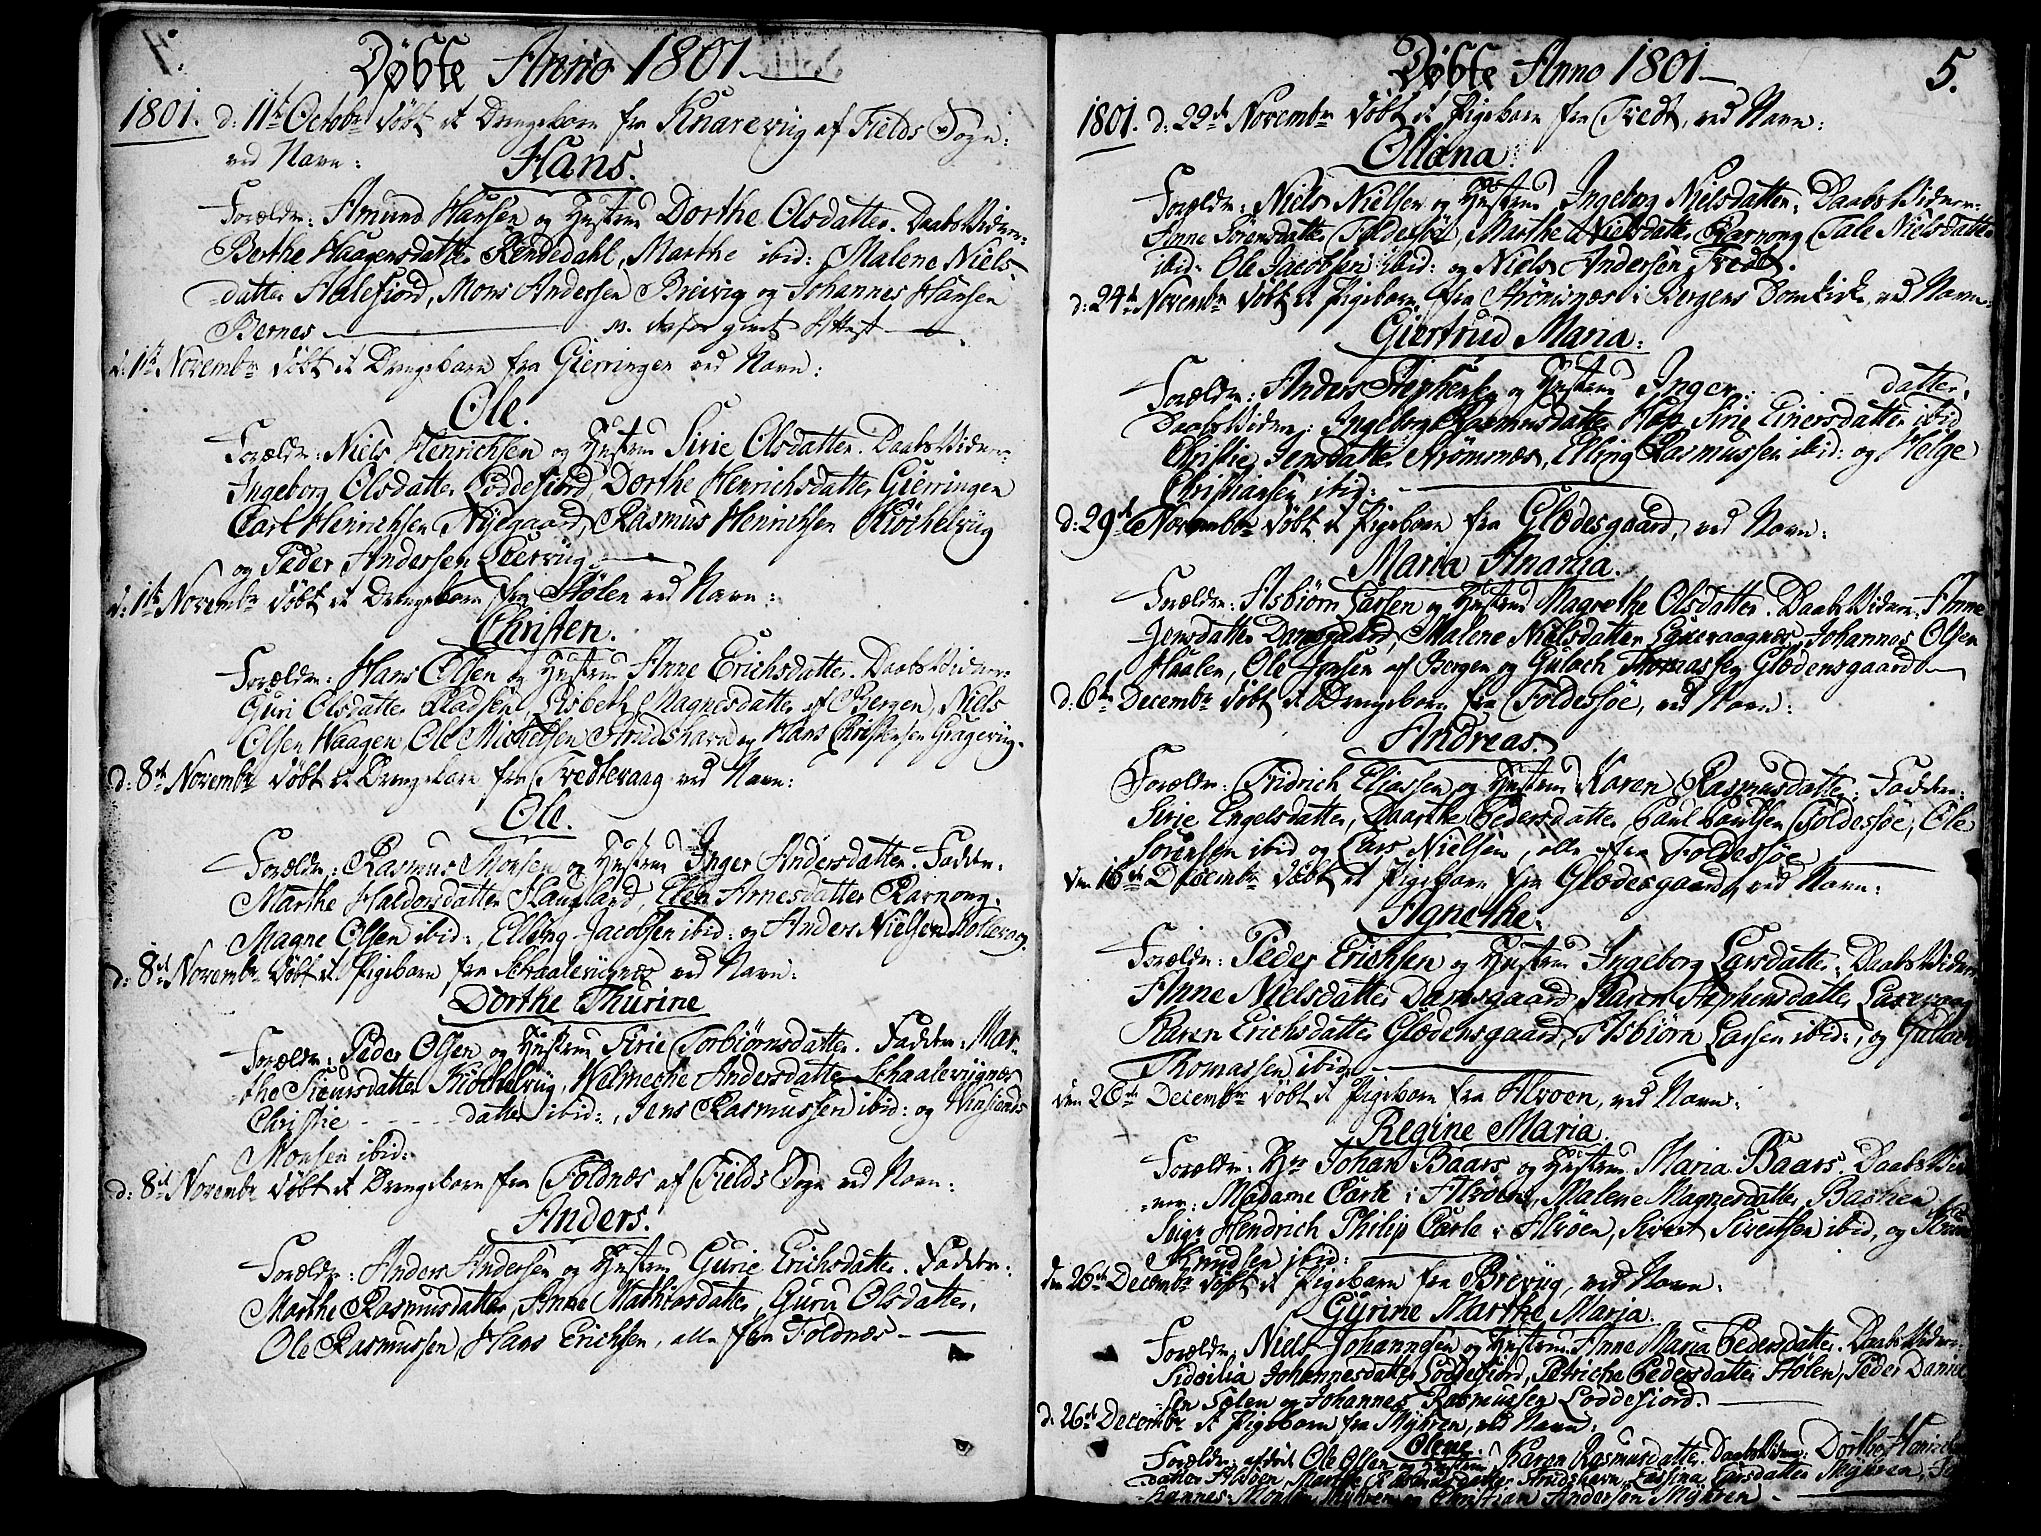 Døbte Anno 1801
1801. d: 11te Octobr døbt et Drengebarn fra Knarreviig af Fields Sogn:
ved Navn:
Hans.
Forældre: Amund Hansen og Hustrue Dorthe Olsdatter. Daabs Vidner:
Berthe Haagensdatter Rendedahl, Marthe ibid: Malene Niels-
datter Halefiord, Mons Andersen Breivig og Johannes Hansen
Bernes
d: 1te Novembr døbt et Drengebarn fra Gierringen ved Navn:
Ole.
Forældre: Niels Henrichsen og Hustrue Sirie Olsdatter. Daabs Vidner:
Ingeborg Olsdatter Loddefiord, Dorthe Henrichsdatter Gierringen
Carl Henrichsen Nÿegaard, Rasmus Henrichsen Kiøchelviig
og Peder Andersen Leerviig.
d: 1te Novembr døbt et Drengebarn fra Hølen ved Navn:
Christen.
Forældre: Hans Olsen og Hustrue Anne Erichsdatter. Daabs Vidner:
Guri Olsdatter Radsøen, Lisbeth Magnesdatter af Bergen, Niels
Olsen Haagen, Ole Michelsen Strudshavn og Hans Christensen Gragevig.
d: 8de Novembr døbt et Drengebarn fra Tvedtevaag ved Navn:
Ole.
Forældre: Rasmus Monsen og Hustrue Inger Andersdatter. Faddere:
Marthe Haldorsdatter Haugland, Elen Arnesdatter Rarnong,
Magne Olsen ibid:, Elling Jacobsen ibid: og Anders Nielsen Kollevog.
d: 8de Novembr døbt et Pigebarn fra Schaaleviignæs ved Navn:
Dorthe Thurine
Forældre: Peder Olsen og Hustrue Sirie Torbiørnsdatter. Faddere: Mar-
the Siversdatter Kiøchelviig, Welmeche Andersdatter Schaaleviignæs
Christie - - - - - datter ibid:, Jens Rasmussen ibid: og Winsents
Monsen ibid:
d: 8de Novembr døbt et Drengebarn fra Foldnæs af Fields Sogn ved Navn:
Anders.
Forældre: Anders Andersen og Hustrue Gurie Erichsdatter. Faddere:
Marthe Rasmusdatter, Anne Mathiasdatter, Guru Olsdatter,
Ole Rasmussen, Hans Erichsen, alle fra Foldnæs
Døbte Anno 1801
5.
1801. d: 22de Novembr døbt et Pigebarn fra Tvedt, ved Navn:
Oliana:
Forældre: Niels Nielsen og Hustrue Ingeborg Nielsdatter. Daabs Vidner:
Anne Sørensdatter Foldesøe, Marthe Nielsdatter Rarnong, Tale Nielsdatter
ibid: Ole Jacobsen ibid: og Niels Andersen Tvedt.
d: 24de Novembr døbt et Pigebarn fra Strømsnæs i Bergens Domkirke, ved Navn:
Giertrud Maria:
Forældre: Anders Stephensen og Hustrue Inger - - - - datter,
Daabs Vidner: Ingeborg Rasmusdatter Hop, Siri Einersdatter ibid
Christie Jensdatter Strømmæs, Elling Rasmussen ibid: og Helge
Christiansen ibid:
d: 29de Novembr døbt et Pigebarn fra Glødesgaard, ved Navn:
Maria Anania.
Forældre: Asbiørn Larsen og Hustrue Magrethe Olsdatter. Daabs Vidner: Anne
Jensdatter Damsgaard, Malene Nielsdatter Laxevaagnes, Johannes Olsen
Haalen, Ole Jonsen af Bergen og Gulach Thomassen Glødensgaard
d: 6te Decembr døbt et Drengebarn fra Foldessøe, ved Navn:
Andreas.
Forældre: Fridrich Eliassen og Hustrue Karen Rasmusdatter. Faddere:
Sirie Engelsdatter, Daarthe Pedersdatter, Paul Paulsen Foldessøe, Ole
Sørensen ibid og Lars Nielsen, alle fra Foldessøe
den 16de Decembr døbt et Pigebarn fra Glødesgaard, ved Navn:
Agnethe.
Forældre: Peder Erichsen og Hustrue Ingeborg Larsdatter. Daabs Vidner
Anne Nielsdatter Damsgaard, Karen Stephensdatter Laxevaag
Karen Erichsdatter Glødensgaard, Asbiørn Larsen ibid:, og Gulach
Thomassen ibid:
den 26de Decembr døbt et Pigebarn fra Alvøen, ved Navn:
Regine Maria.
Forældre: Hr Johan Baars og Hustrue Maria Baars. Daabs Vid-
ner: Madame Carle i Alvøen, Malene Magnesdatter Bachen
Seigr Hendrich Philip Carle i Alvøen, Sivert Sivertsen ibid, og
Knudsen ibid:
den 26de Decembr døbt et Pigebarn fra Breviig, ved Navn:
Gyrine Marthe Maria.
Forældre: Niels Johannsen og Hustrue Anne Maria Pedersdatter. Daabs Vidner:
Sidsilia Johannesdatter Loddefiord, Petriche Pedersdatter Hølen, Peder Daniel-
sen Sælen og Johannes Rasmussen Loddefiord.
d: 26de Decembr et Pigebarn fra Mÿhren, ved Navn:
Olene.
Forældre: afdøde Ole Olsen og Hustrue Karen Rasmusdatter. Daabs Vidner: Dorthe
datter Alvøen, Marthe Strudshavn, Larsdatter Mÿhren, Jo-
hannes Monsen Mÿhren og Christian Andersen Mÿhren